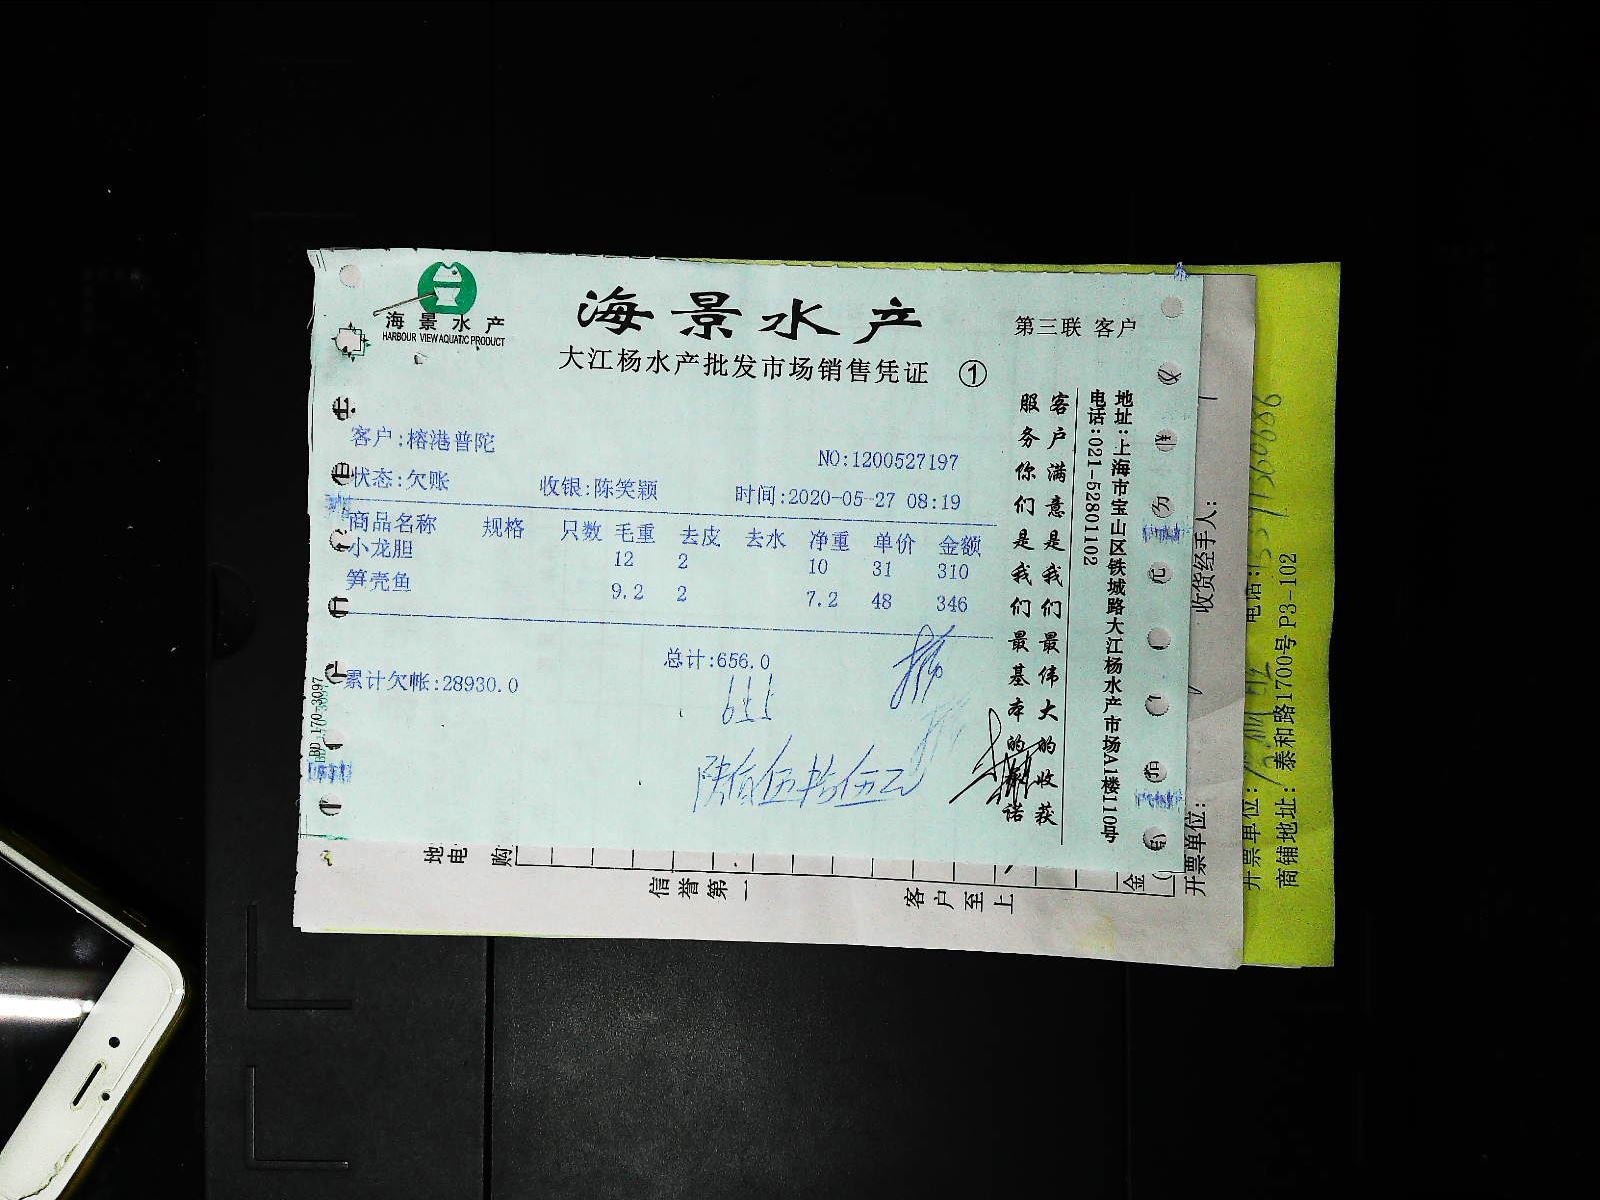 海景水产
HARBOUR VIEW AQUATIC PRODUCT
海景水产
第三联 客户
大江杨水产批发市场销售凭证 ①
客户:榕港普陀
NO:1200527197
状态:欠账 收银:陈笑颖 时间:2020-05-27 08:19
商品名称 规格 只数 毛重 去皮 去水 净重 单价 金额
小龙胆 12 2 10 31 310
笋壳鱼 9.2 2 7.2 48 346
总计:656.0
累计欠帐:28930.0
陆佰伍拾伍元
客户满意是我们最伟大的收获
服务你们是我们最基本的承诺
地址:上海市宝山区铁城路大江杨水产市场A1楼110号
电话:021-52801102
BD 170-3097
地
电
购
信誉第一
客户至上
金
开票单位:
收货经手人:
开票单位:
电话:
商铺地址:泰和路1700号 P3-102